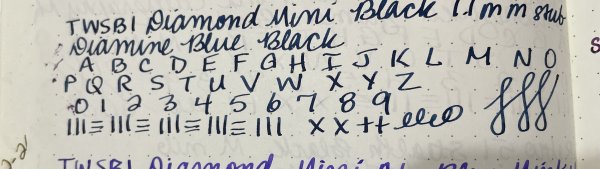 TWSBI Diamond Mini Black 1.1mm stub
Diamine Blue Black
A B C D E F G H I J K L M N O
P Q R S T U V W X Y Z
0 1 2 3 4 5 6 7 8 9
TWSBI Diamond Mini